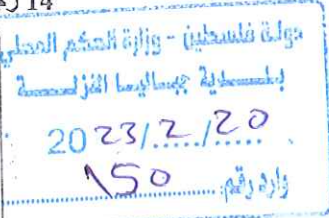 14
دولة فلسطين - وزارة الحكم المحلي
بلدية جباليا النزلة
2023/2/20
وارد رقم: 150